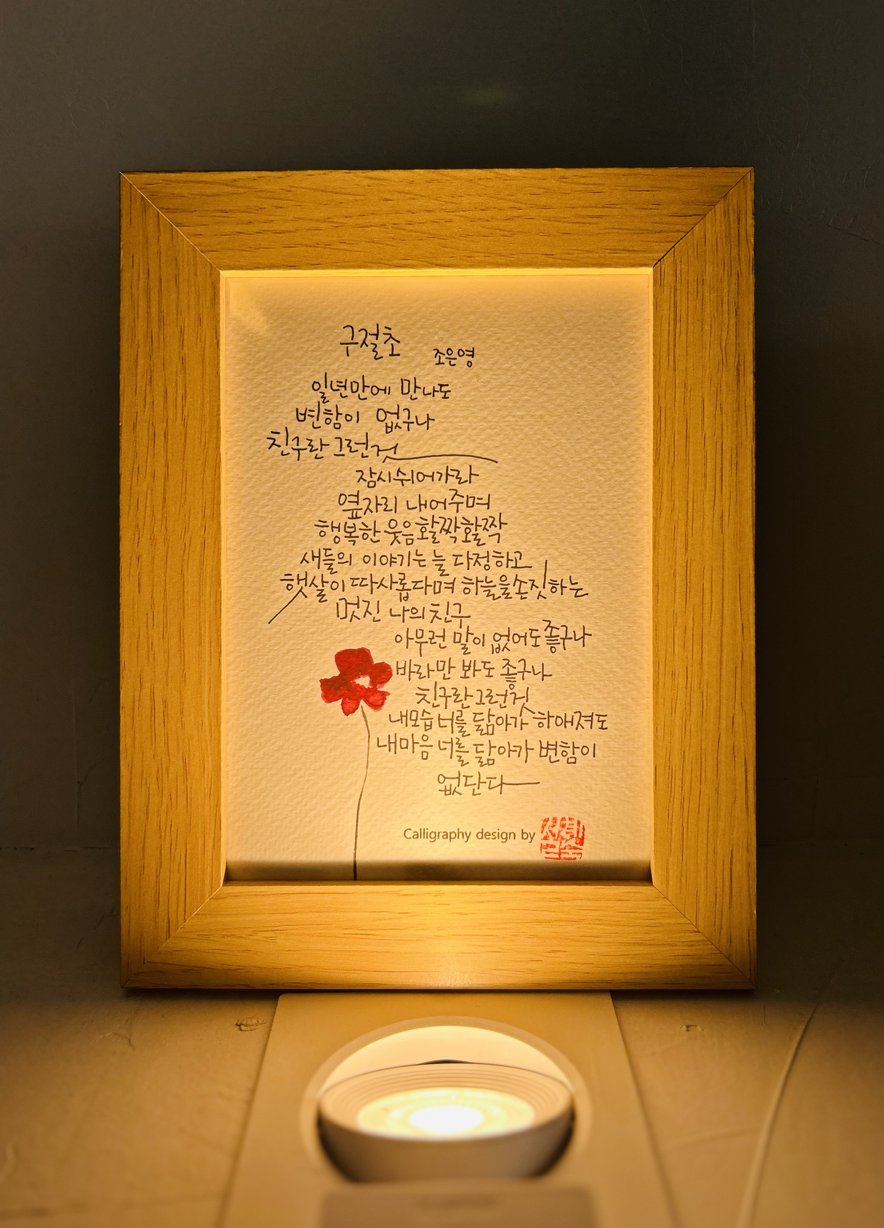 구절초
조은영
일년만에 만나도
변함이 없구나
친구란 그런것
잠시 쉬어가라
옆자리 내어주며
행복한 웃음 활짝활짝
새들의 이야기는 늘 다정하고
햇살이 따사롭다며 하늘을 손짓하는
멋진 나의 친구
아무런 말이 없어도 좋구나
바라만 봐도 좋구나
친구란 그런것
내모습 너를 닮아가 하애져도
내마음 너를 닮아가 변함이
없단다
Calligraphy design by